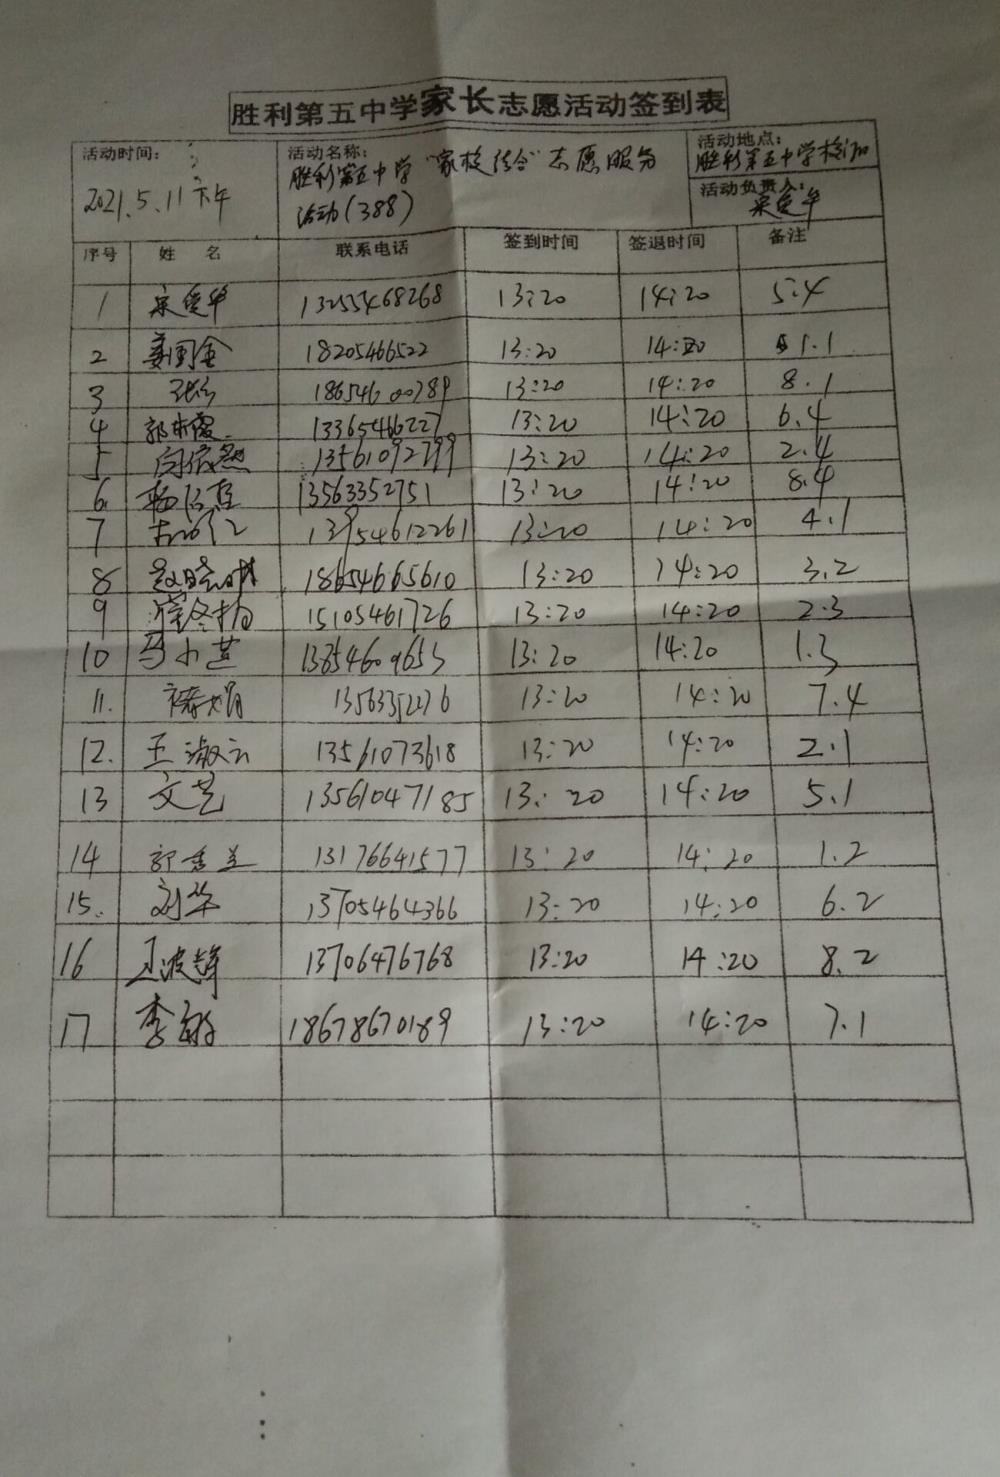 胜利第五中学家长志愿活动签到表
活动时间: 2021.5.11下午
活动名称: 胜利第五中学"家校结合"志愿服务
活动(388)
活动地点: 胜利第五中学校门口
活动负责人: 宋俊华
序号 姓名 联系电话 签到时间 签退时间 备注
1 宋俊华 13255468268 13:20 14:20 5.4
2 姜国金 18205466522 13:20 14:20 1.1
3 13:20 14:20 8.1
4 郭东霞 13365466227 13:20 14:20 6.4
5 13561092799 13:20 14:20 2.4
6 13563352751 13:20 14:20 8.4
7 13954612261 13:20 14:20 4.1
8 18654665610 13:20 14:20 3.2
9 15105461726 13:20 14:20 2.3
10 马小芝 13854609653 13:20 14:20 1.3
11. 13:20 14:20 7.4
12. 王淑云 13561073618 13:20 14:20 2.1
13 文艺 13561047185 13:20 14:20 5.1
14 郭秀兰 13176641577 13:20 14:20 1.2
15. 刘华 13705464366 13:20 14:20 6.2
16 王波锋 13706476768 13:20 14:20 8.2
17 李敏 18678670189 13:20 14:20 7.1